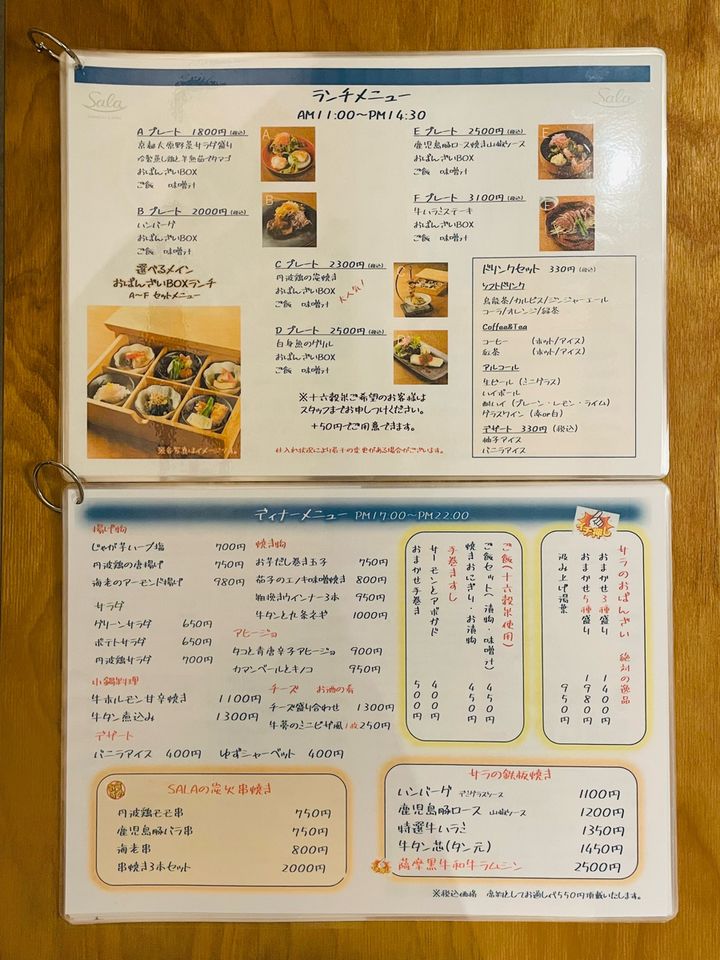 Sala
Sala
ランチメニュー
AM11:00〜PM14:30
A プレート 1800円(税込)
京都大原野菜サラダ盛り
冷製蒸し鶏と半熟茹タマゴ
おばんざいBOX
ご飯 味噌汁
A
B プレート 2000円(税込)
ハンバーグ
おばんざいBOX
ご飯 味噌汁
B
選べるメイン
おばんざいBOXランチ
A〜F セットメニュー
※各写真はイメージです。
C プレート 2300円(税込)
丹波鶏の炭焼き
おばんざいBOX
ご飯 味噌汁
大人気!
D プレート 2500円(税込)
白身魚のグリル
おばんざいBOX
ご飯 味噌汁
※十六穀米ご希望のお客様は
スタッフまでお申しつけください。
+50円でご用意できます。
仕入れ状況により若干の変更がある場合がございます。
E プレート 2500円(税込)
鹿児島豚ロース焼き山椒ソース
おばんざいBOX
ご飯 味噌汁
E
F プレート 3100円(税込)
牛ハラミステーキ
おばんざいBOX
ご飯 味噌汁
F
ドリンクセット 330円(税込)
ソフトドリンク
烏龍茶/カルピス/ジンジャーエール
コーラ/オレンジ/緑茶
Coffee&Tea
コーヒー (ホット/アイス)
紅茶 (ホット/アイス)
アルコール
生ビール(ミニグラス)
ハイボール
酎ハイ(プレーン・レモン・ライム)
グラスワイン(赤or白)
デザート 330円(税込)
柚子アイス
バニラアイス
ディナーメニュー PM17:00〜PM22:00
揚げ物
じゃが芋ハーブ塩 700円
丹波鶏の唐揚げ 750円
海老のアーモンド揚げ 980円
サラダ
グリーンサラダ 650円
ポテトサラダ 650円
丹波鶏サラダ 700円
小鍋料理
牛ホルモン甘辛焼き 1100円
牛タン煮込み 1300円
デザート
バニラアイス 400円 ゆずシャーベット 400円
焼き物
お芋だし巻き玉子 750円
茄子のエノキ味噌焼き 800円
粗挽きウインナー3本 950円
牛タンと九条ネギ 1000円
アヒージョ
タコと青唐辛子アヒージョ 900円
カマンベールとキノコ 950円
チーズ お酒の肴
チーズ盛り合わせ 1300円
牛蒡のミニピザ風 1枚250円
ご飯(十六穀米使用)
ご飯セット(漬物・味噌汁) 450円
焼きおにぎり・お漬物 450円
手巻きすし
サーモンとアボガド 400円
おまかせ手巻き 500円
イチ押し
サラのおばんざい 絶対の逸品
おまかせ3種盛り 1400円
おまかせ5種盛り 1980円
汲み上げ湯葉 950円
SALAの炭火串焼き
丹波鶏モモ串 750円
鹿児島豚バラ串 750円
海老串 800円
串焼き3本セット 2000円
サラの鉄板焼き
ハンバーグ デミグラスソース 1100円
鹿児島豚ロース 山椒ソース 1200円
特選牛ハラミ 1350円
牛タン芯(タン元) 1450円
薩摩黒牛和牛ラムシン 2500円